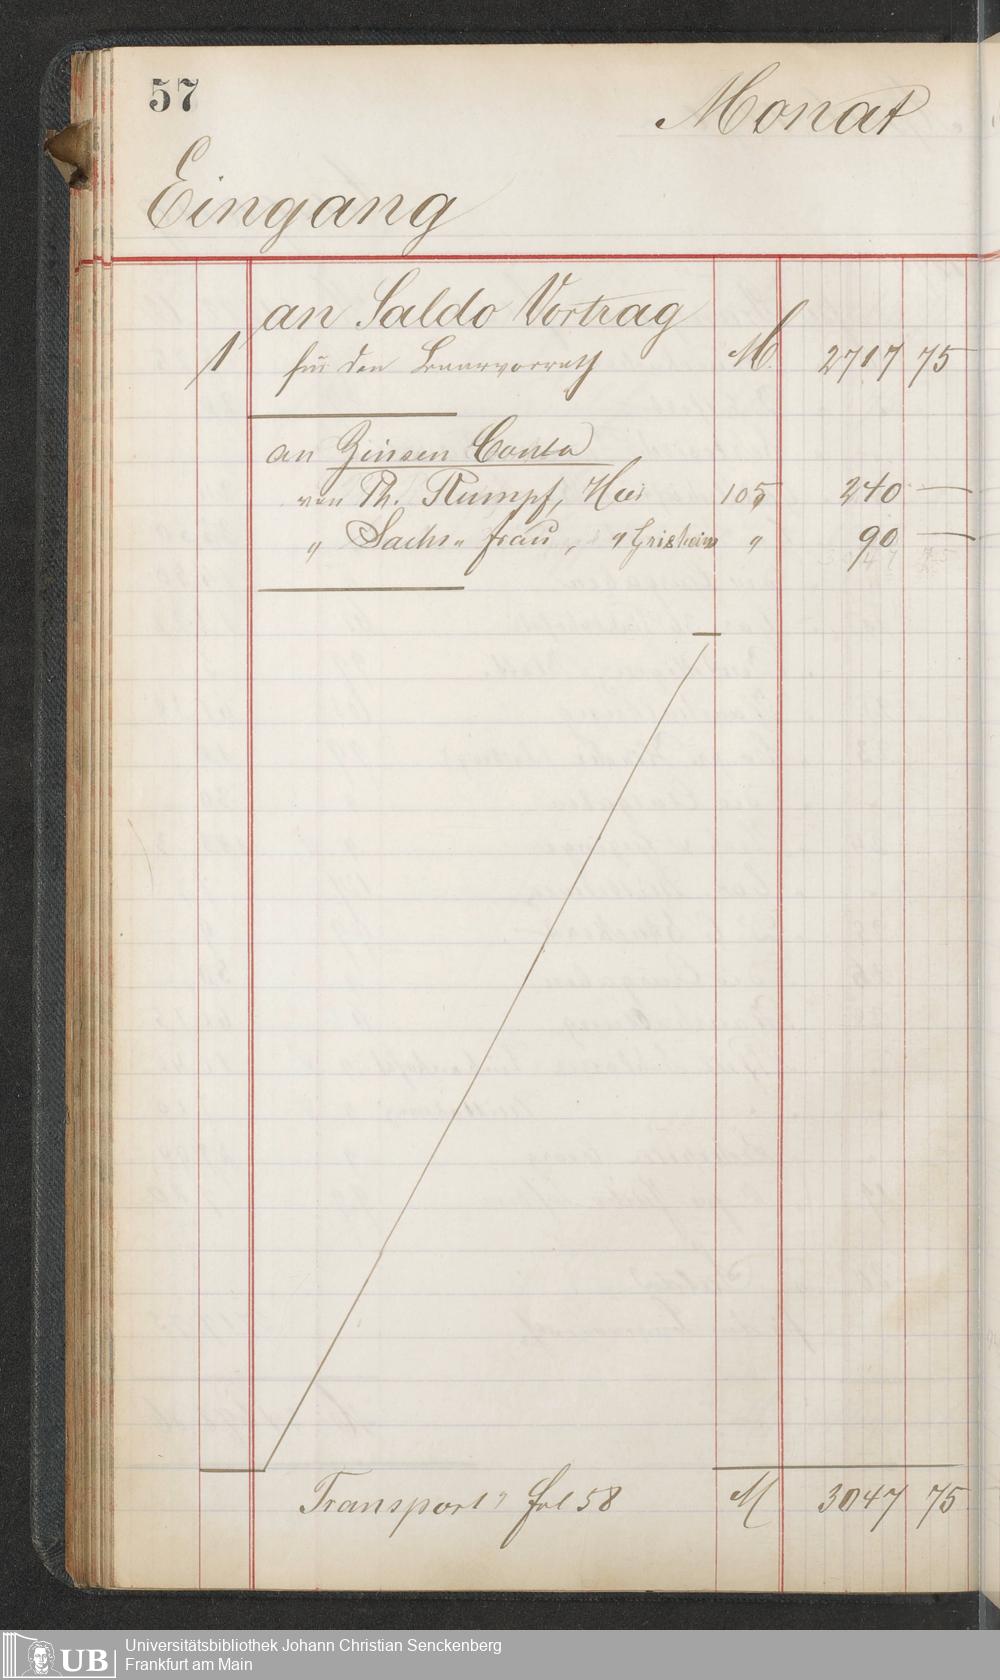 57
Monat
Eingang
an Saldo Vortrag
1 für den Baarvorrath M. 2717 75
an Zinsen Conto
von Th. Rumpf, 105 240 —
" Sachs " frau, " Grisheim " 90 —
Transport " fol 58 M 3047 75
UB Universitätsbibliothek Johann Christian Senckenberg
Frankfurt am Main